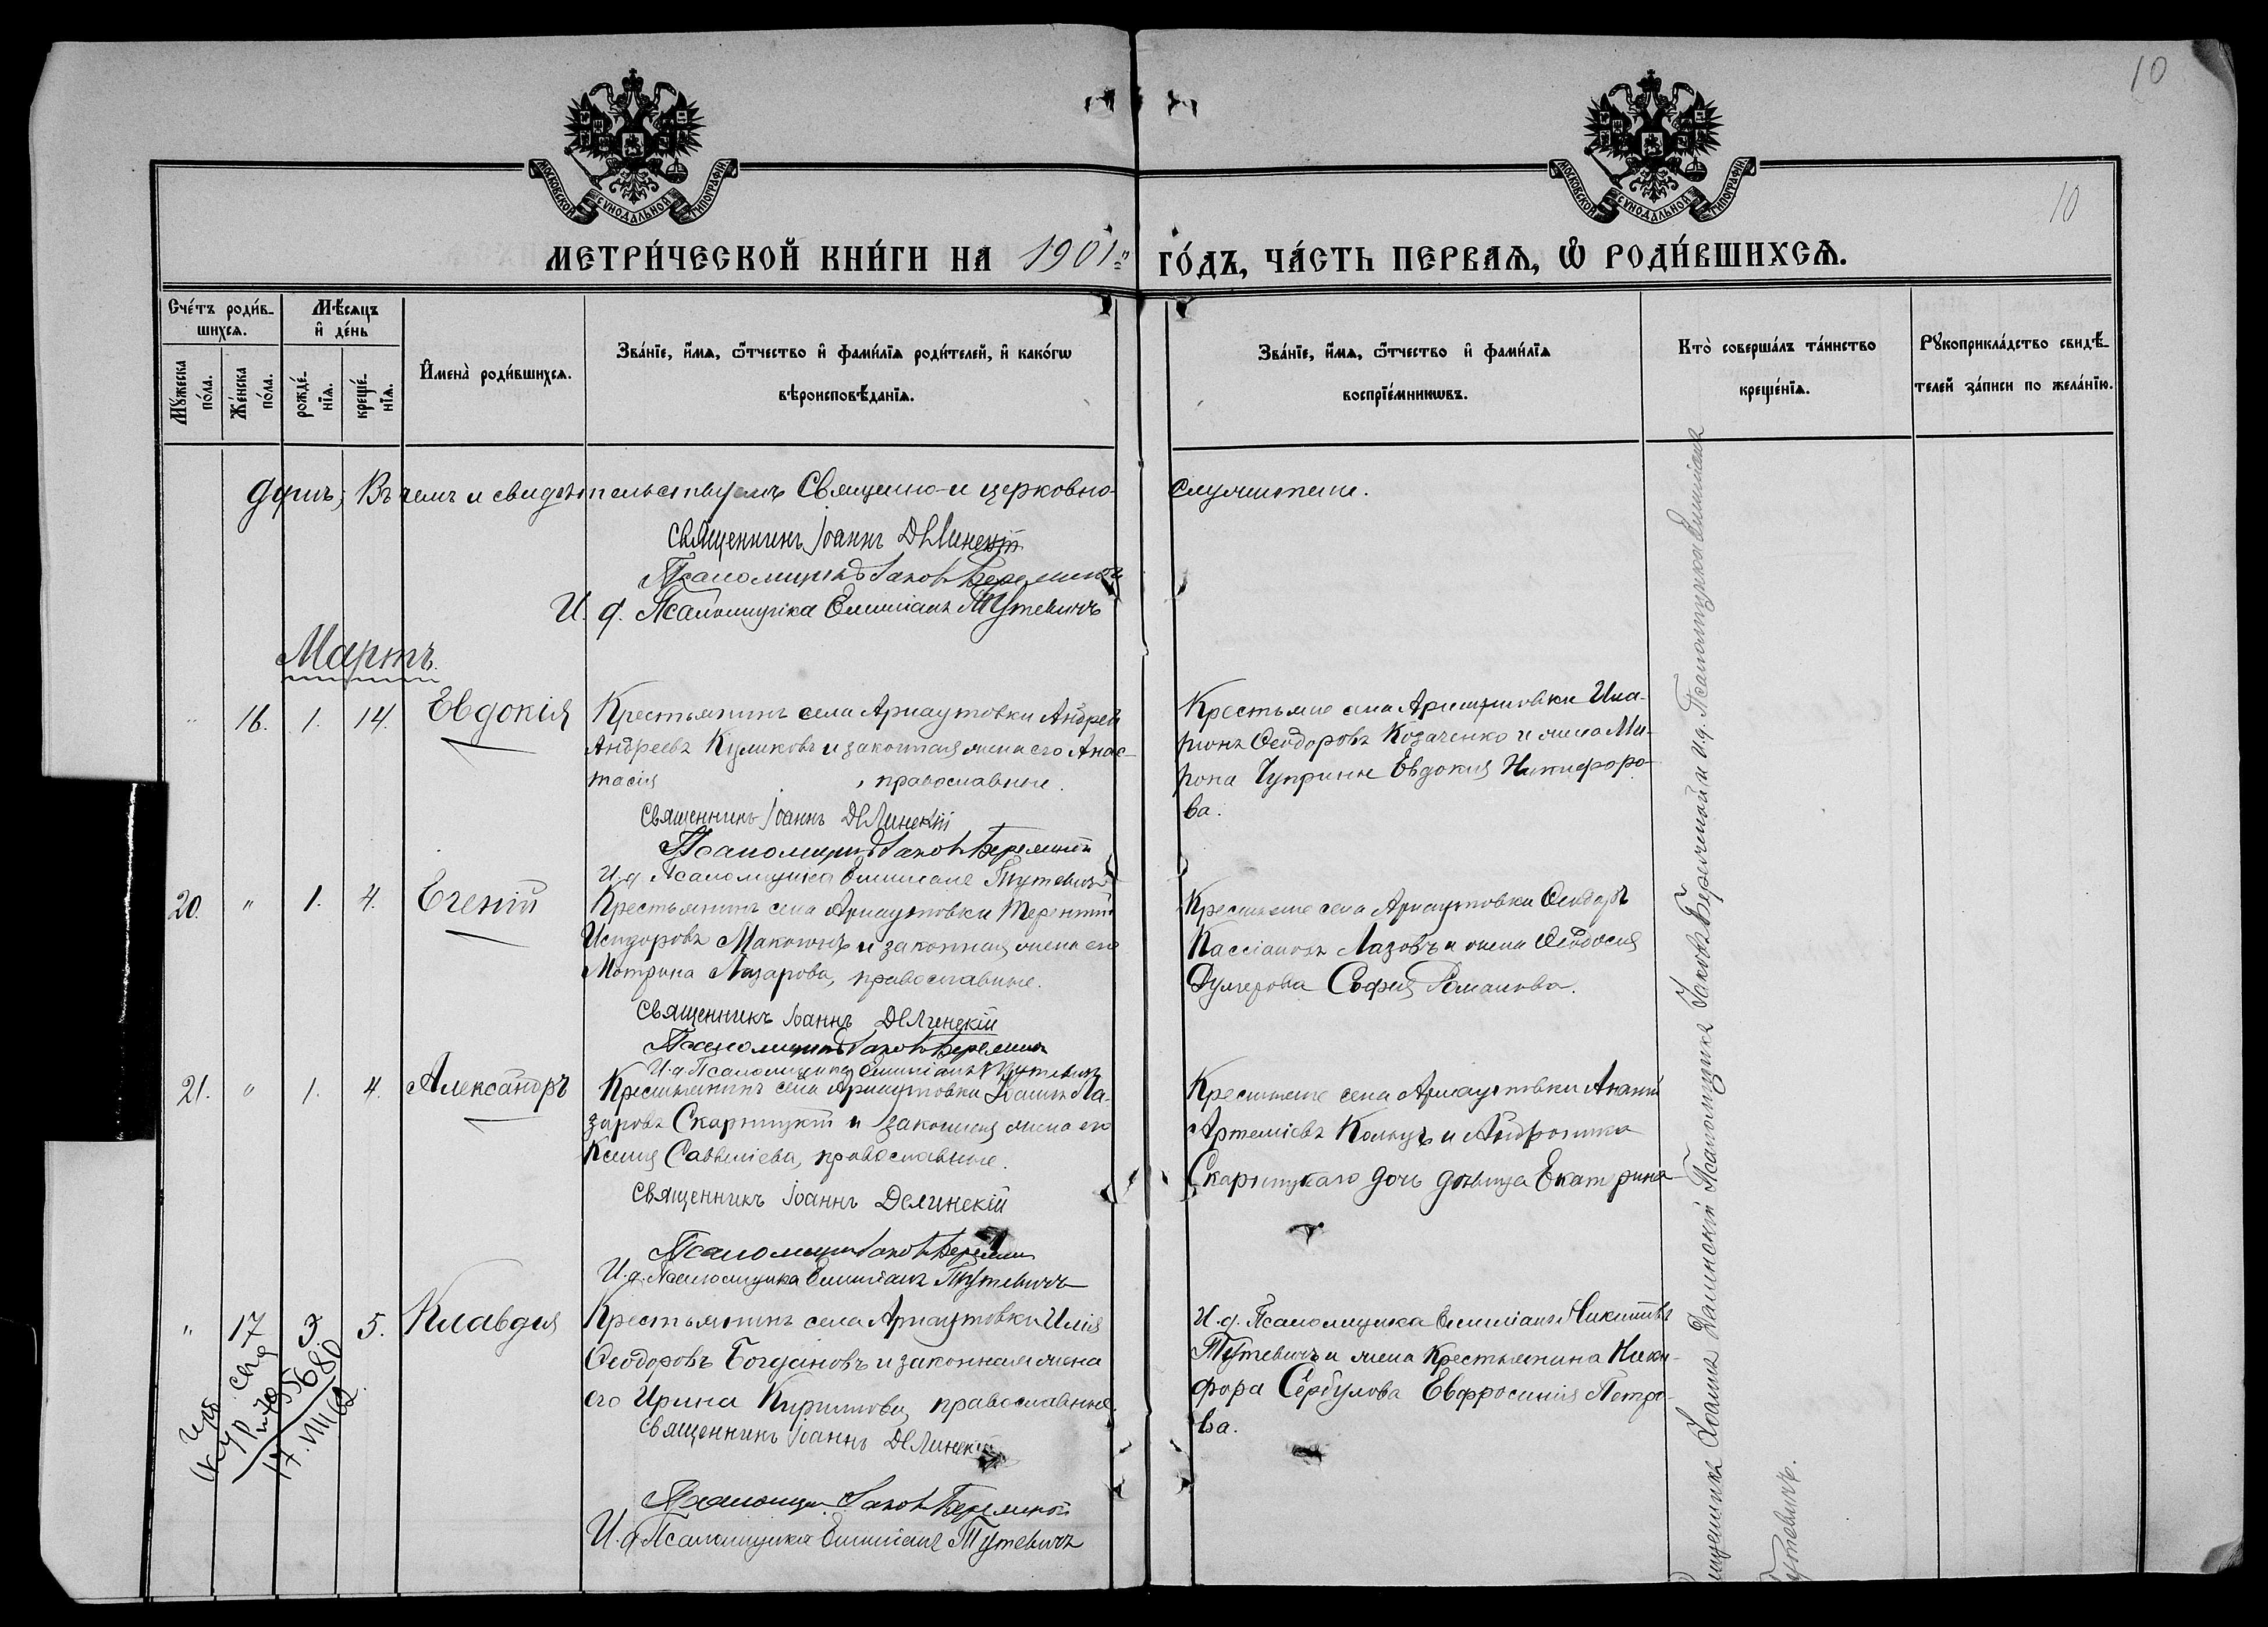 10
10
МОСКОВСКОЙ СѴНОДАЛЬНОЙ ТИПОГРАФІИ
МОСКОВСКОЙ СѴНОДАЛЬНОЙ ТИПОГРАФІИ
МЕТРИ́ЧЕСКОЙ КНИ́ГИ НА 1901 й ГО́ДЪ, ЧА́СТЬ ПЕРВАѦ, Ѡ҆ РОДИ́ВШИХСѦ.
Сче́тъ роди́в-
шихсѧ.
Мѣ́сѧцъ
и҆ де́нь
Мꙋ́жеска
по́ла.
Же́нска
по́ла.
рожде́-
нїѧ.
креще́-
нїѧ.
И҆мена̀ роди́вшихсѧ.
Зва́нїе, и҆́мѧ, ѻ҆́тчество и҆ фами́лїѧ роди́телей, и҆ како́гѡ
вѣроисповѣ́данїѧ.
Зва́нїе, и҆́мѧ, ѻ҆́тчество и҆ фами́лїѧ
воспрїе́мникѡвъ.
Кто̀ соверша́лъ та́инство
креще́нїѧ.
Рꙋкоприкла́дство свидѣ́-
телей за́писи по жела́нїю.
душъ; Въ чемъ и свидѣтельствуемъ Священно- и церковно-служители.
Священникъ Іоаннъ Делинскій
Псаломщикъ Іаков
И. д. Псаломщика Емиліанъ Тутевичъ
Мартъ.
" 16. 1. 14. Евдокія
Крестьянинъ села Арнаутовки Андрей
Андреевъ Куликовъ и законная жена его Анас-
тасія , православные.
Священникъ Іоаннъ Делинскій
Псаломщикъ Іаков
И. д. Псаломщика Емиліанъ Тутевичъ
Крестьяне села Арнаутовки Ила-
ріонъ Ѳеодоровъ Козаченко и жена Ми-
рона Чуприны Евдокия Никифоро-
ва.
20. " 1. 4. Егеній
Крестьянинъ села Арнаутовки Терентій
Исидоровъ Маконъ и законная жена его
Мотрина Лазарова, православные.
Священникъ Іоаннъ Делинскій
Псаломщикъ Іаков
И. д. Псаломщика Емиліанъ Тутевичъ
Крестьяне села Арнаутовки Ѳеодоръ
Кассіановъ Лазовъ и жена Ѳеодосия
София Романова.
21. " 1. 4. Александръ
Крестьянинъ села Арнаутовки Іоаннъ Ла-
заровъ Скарницкій и законная жена его
Ксенія Савеліева, православные.
Священникъ Іоаннъ Делинскій
Псаломщикъ Іаков
И. д. Псаломщика Емиліанъ Тутевичъ
Крестьяне села Арнаутовки Ананій
Артеміевъ и Андроника
Скарницкаго дочь дѣвица Екатерина
" 17 3. 5. Клавдия
Крестьянинъ села Арнаутовки Илія
Ѳеодоровъ Богдановъ и законная жена
его Ирина Кириллова, православные.
Священникъ Іоаннъ Делинскій
Псаломщ. Іаков
И. д. Псаломщика Емиліанъ Тутевичъ
И. д. Псаломщика Емиліанъ Никитовъ
Тутевичъ и жена крестьянина Ники-
фора Сербулова Евфросинія Петро-
ва.
17.VIII
Іоаннъ Делинскій Псаломщикъ Іаковъ и И. д. Псаломщика Емиліанъ
Тутевичъ.